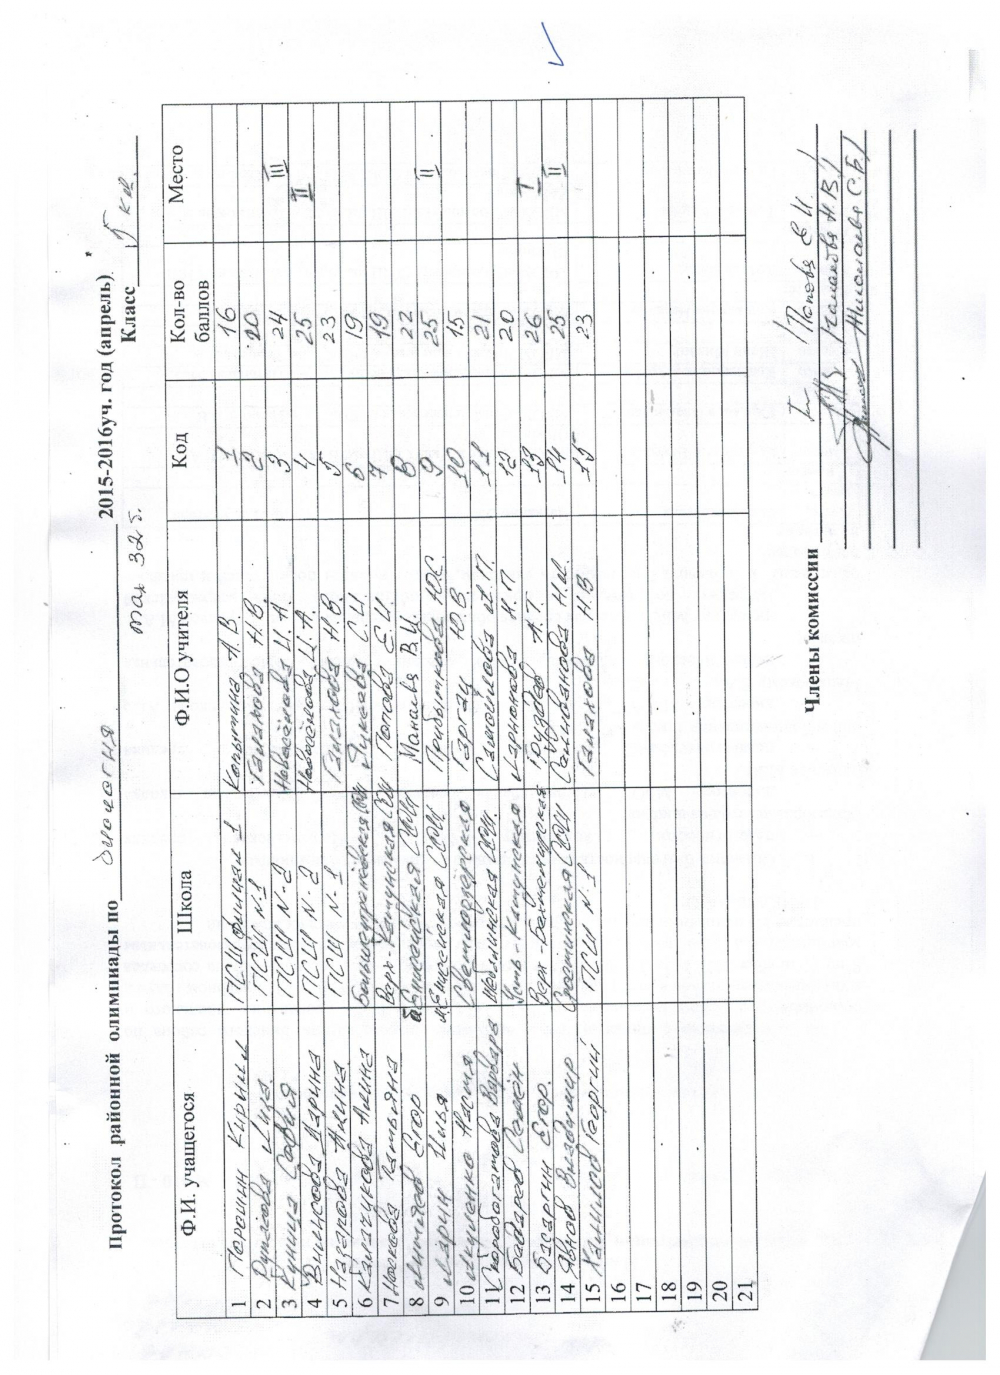 Протокол районной олимпиады по биология 2015-2016уч. год (апрель)
max 32 б. Класс 5 кл.
Ф.И. учащегося Школа Ф.И.О учителя Код Кол-во баллов Место
1 Порошин Кирилл ПСШ филиал 1 Копытина А.В. 1 16
2 Лиза ПСШ N.1 Талахова Н.В. 2 20
3 Куница София ПСШ N-2 Новосёлова И.А. 3 24 III
4 Денисова Дарина ПСШ N-2 Новосёлова И.А. 4 25 II
5 Назарова Алина ПСШ N-1 Талахова Н.В. 5 23
6 Калачикова Алина С.И. 6 19
7 Носкова Татьяна Верх-Катунская СОШ Попова Е.И. 7 19
8 Егор СОШ В.И. 8 22
9 Ларин Илья Енисейская СОШ Прибыткова Ю.С. 9 25 II
10 Акуленко Настя Светлоозёрская Гаргац Ю.В. 10 15
11 Скоробогатова Варвара Шебалинская СОШ. Самойлова Л.П. 11 21
12 Бадарев Семён Усть-Катунская Ларионова Н.П. 12 20
13 Басаргин Егор. Верх-Бехтемирская Груздев А.Т. 13 26 I
14 Явнов Владимир Сростинская СОШ Селиванова Н.М. 14 25 II
15 Халилов Георгий ПСШ N.1 Талахова Н.В 15 23
16
17
18
19
20
21
Члены комиссии /Попова Е И/
/Талахова Н.В./
С.Б./